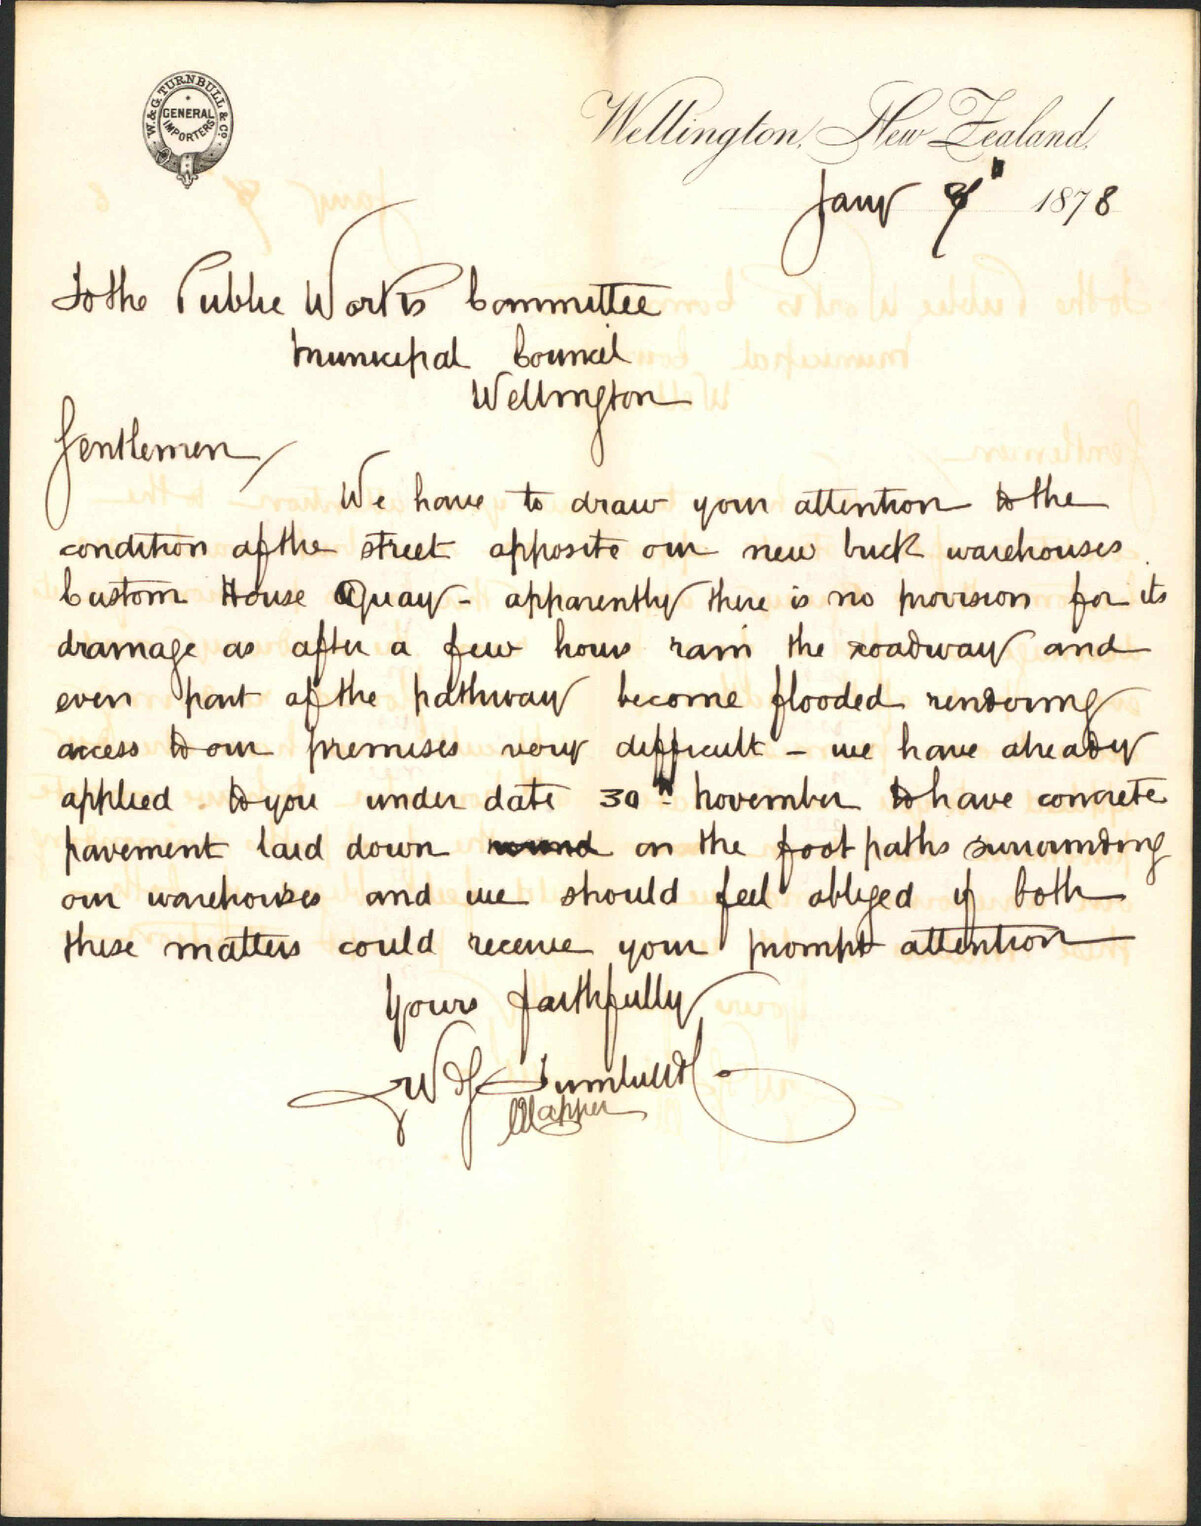 W. & G. TURNBULL & CO.
GENERAL IMPORTERS
Wellington, New Zealand.
Jany 1878
To the Public Works Committee
Municipal Council
Wellington
Gentlemen
We have to draw your attention to the
condition of the street opposite our new brick warehouses.
Custom House Quay - apparently there is no provision for its
drainage as after a few hours rain the roadway and
even part of the pathway become flooded rendering
access to our premises very difficult - we have already
applied to you under date 30th November to have concrete
pavement laid down on the foot paths surrounding
our warehouses and we should feel obliged if both
these matters could receive your prompt attention
Yours faithfully
W & G Turnbull & Co